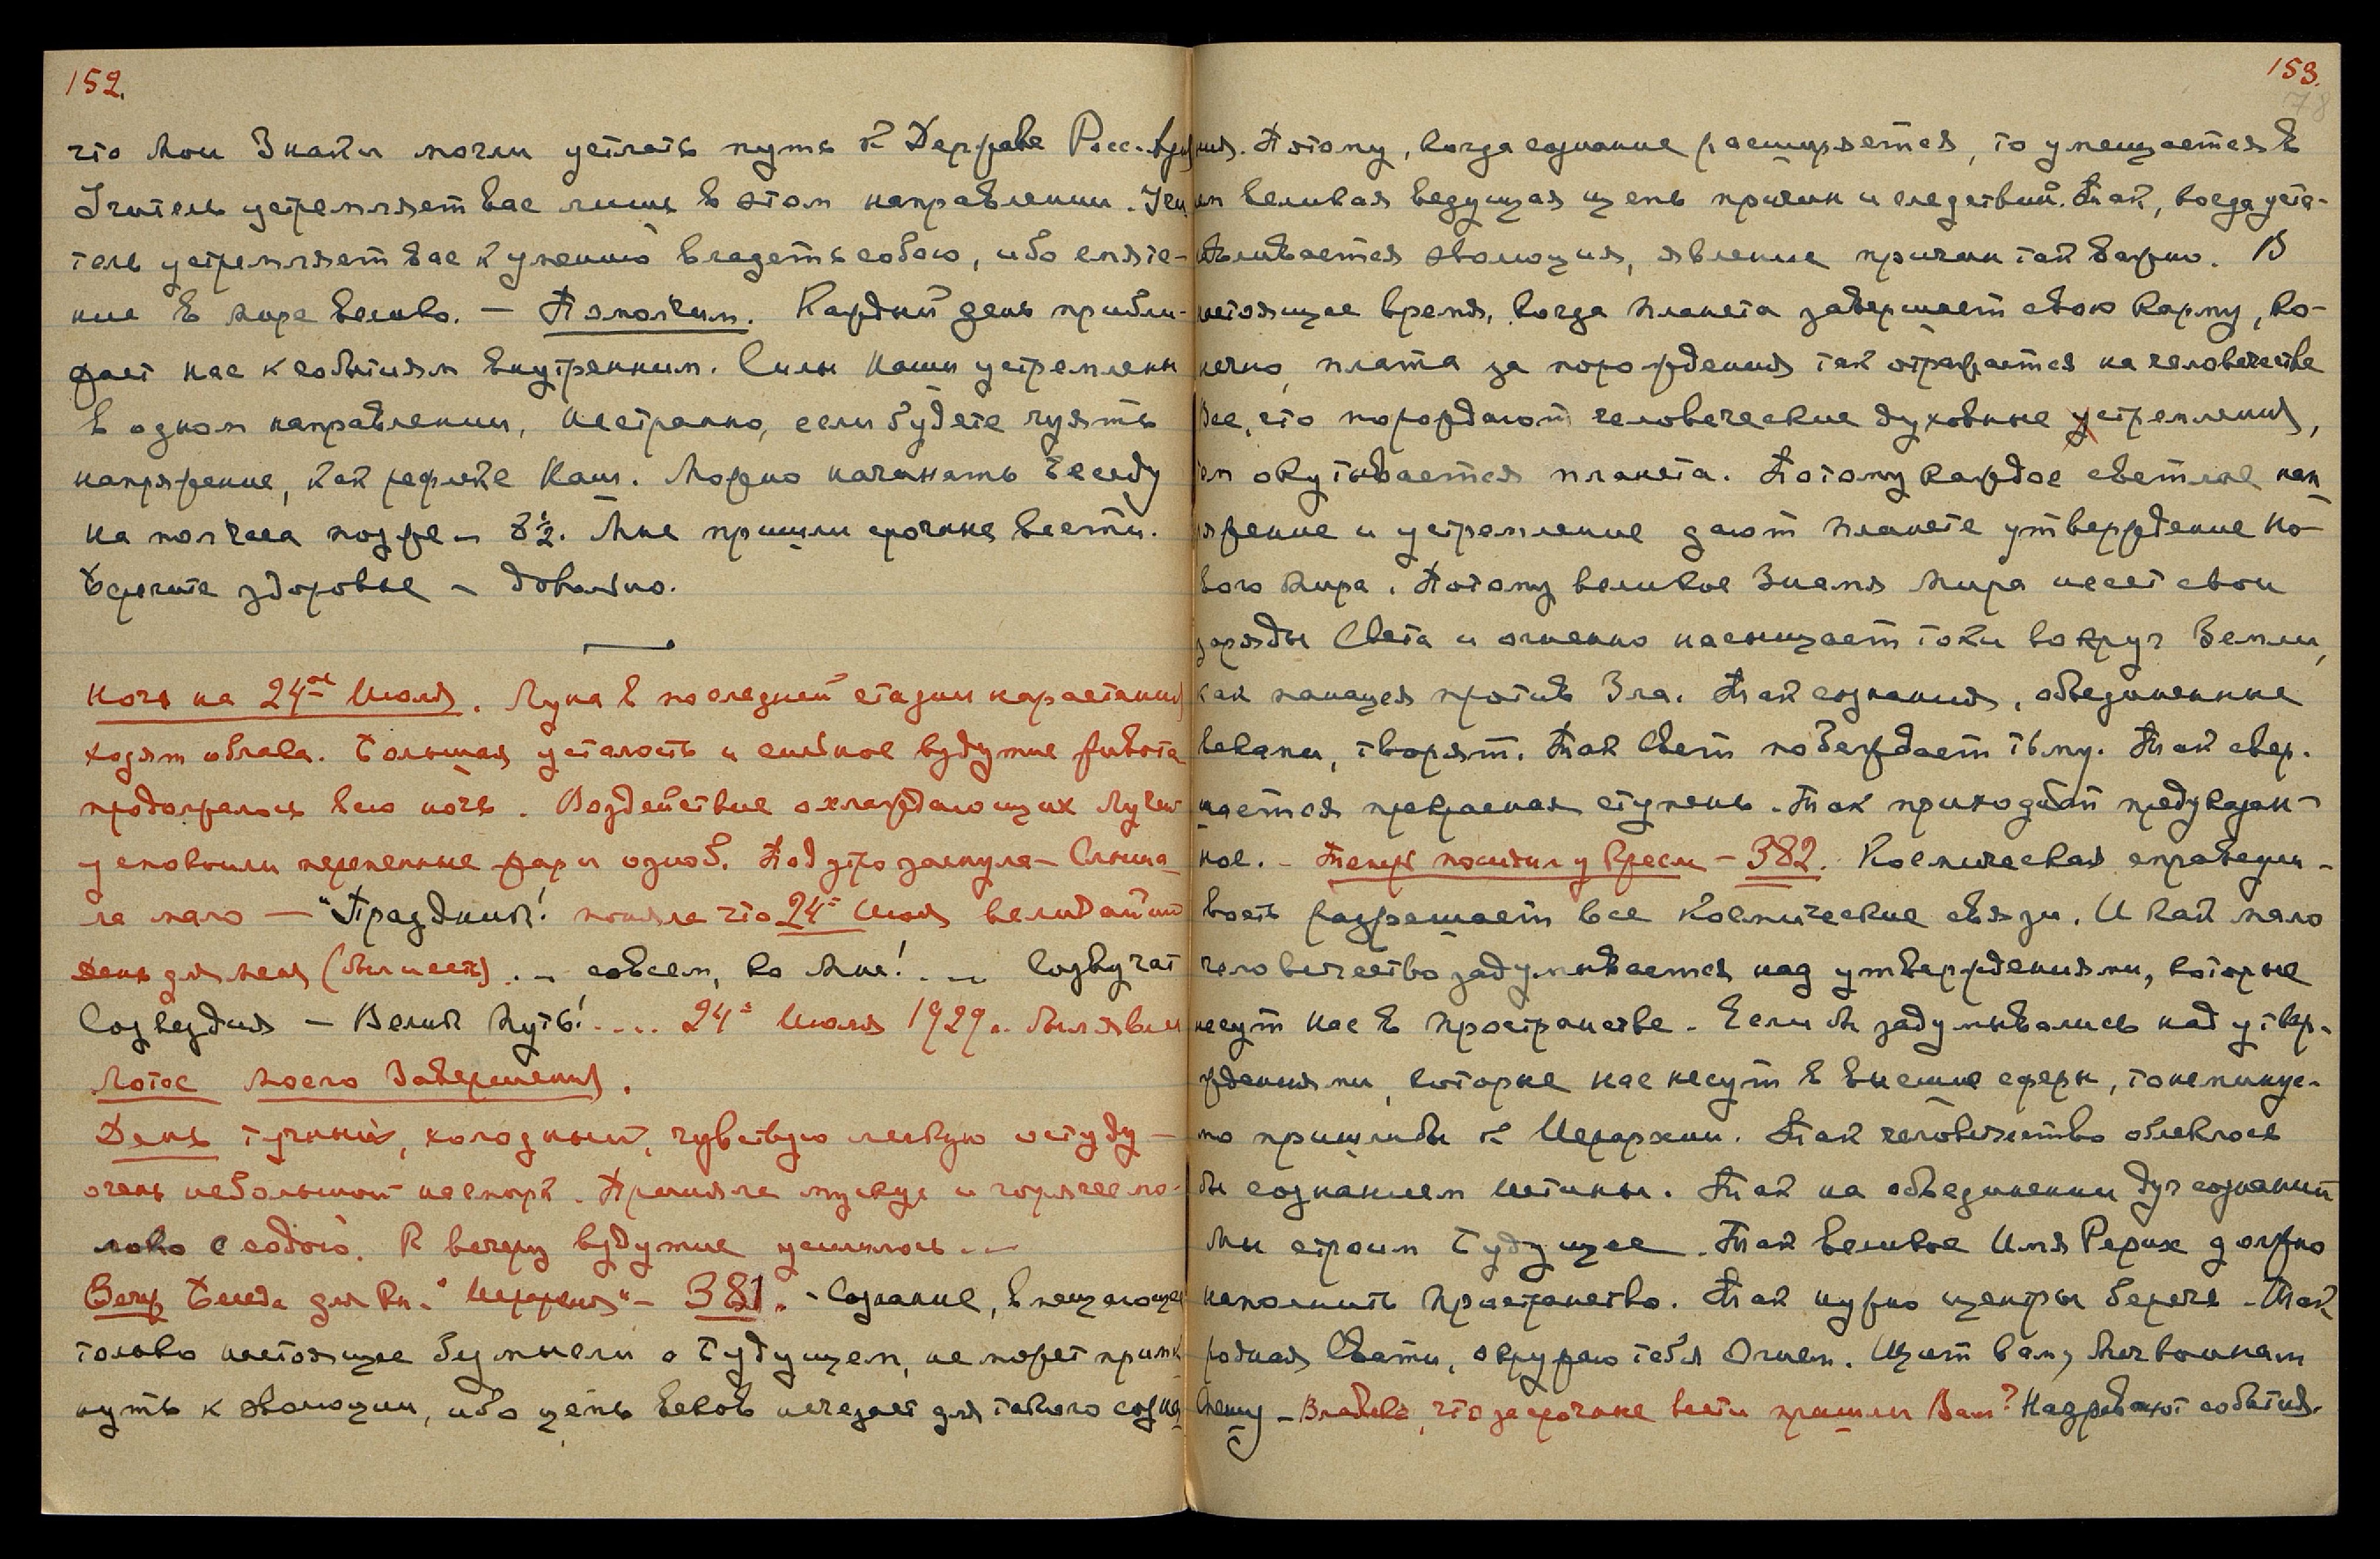 152.
что Мои Знаки могли устлать путь к Державе Росс.
Учитель устремляет вас лишь в этом направлении. Учи-
тель устремляет вас к умению владеть собою, ибо смяте-
ние в мире велико. — Помолчим. Каждый день прибли-
жает нас к событиям внутренним. Силы Наши устремлены
в одном направлении, не странно, если будете чуять
напряжение, как рефлекс Наш. Можно начинать Беседу
на полчаса позже — 8½. Мне пришли срочные вести.
Берегите здоровье — довольно.
Ночь на 24ое Июля. Луна в последней стадии нарастания
ходят облака. Большая усталость и сильное вздутие живота
продолжалось всю ночь. Воздействие охлаждающих Лучей
успокоили переменные жар и озноб. Под утро заснула — Слыша-
ла мало — "Праздник! поняла что 24е Июля величайший
День для меня (был и есть). — совсем, ко Мне! .— Созвучат
Созвездия — Велик Путь! .... 24е Июля 1929г. был явлен
Лотос моего Завершения.
День тучный, холодный, чувствую легкую остуду —
очень небольшой насморк. Приняла мускус и горячее мо-
локо с содою. К вечеру вздутие усилилось ...
Вечер Беседа для Кн. "Иерархия" — 381. — Сознание, вмещающее
только настоящее без мысли о Будущем, не может примк-
нуть к эволюции, ибо цепь веков исчезает для такого созна-
153.
78
ния. Потому, когда сознание расширяется, то умещается в
нем великая ведущая цепь причин и следствий. Так, когда уста-
навливается эволюция, явление причин так важно. В
настоящее время, когда планета завершает свою карму, ко-
нечно, плата за порождения так отражается на человечестве
Все, что порождают человеческие духовные устремления,
тем окутывается планета. Потому каждое светлое нап-
ряжение и устремление дают планете утверждение Но-
вого Мира. Потому великое Знамя Мира несет свои
заряды Света и огненно насыщает токи вокруг Земли,
как панацея против Зла. Так сознания, объединенные
веками, творят. Так Свет побеждает тьму. Так свер-
шается прекрасная ступень. Так приходит предуказан-
ное. — Теперь посидим у Кресла — 382. Космическая справедли-
вость разрешает все космические связи. И как мало
человечество задумывается над утверждениями, которые
несут нас в пространстве. Если бы задумывались над утвер-
ждениями, которые нас несут в высшие сферы, то немину-
мо пришли бы к Иерархии. Так человечество облеклось
бы сознанием Истины. Так на объединении двух сознаний
Мы строим Будущее. Так великое Имя Рерих должно
наполнить Пространство. Так нужно центры беречь. Так,
родная Свати, окружаю тебя Огнем. Щит вам,
Спешу — Владыка, что за срочные вести пришли Вам? Назревают события.